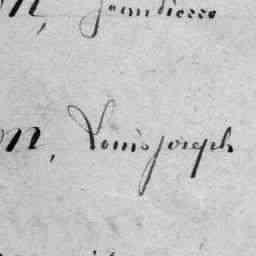 n, Jean Pierre
n, Louis joseph